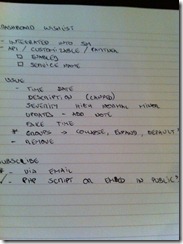 DASHBOARD WISHLIST
- INTEGRATED INTO SM
- API / CUSTOMISABLE / PARTNER
□ ENABLED
□ SERVICE NAME
ISSUE
- TIME DATE
DESCRIPTION (CAPPED)
SEVERITY HIGH NORMAL MINOR
UPDATES - ADD NOTE
TIME
* GROUPS → COLLAPSE, EXPAND, DEFAULT?
- REMOVE
SUBSCRIBE
* - VIA EMAIL
- PHP SCRIPT OR EMBED IN PUBLIC?